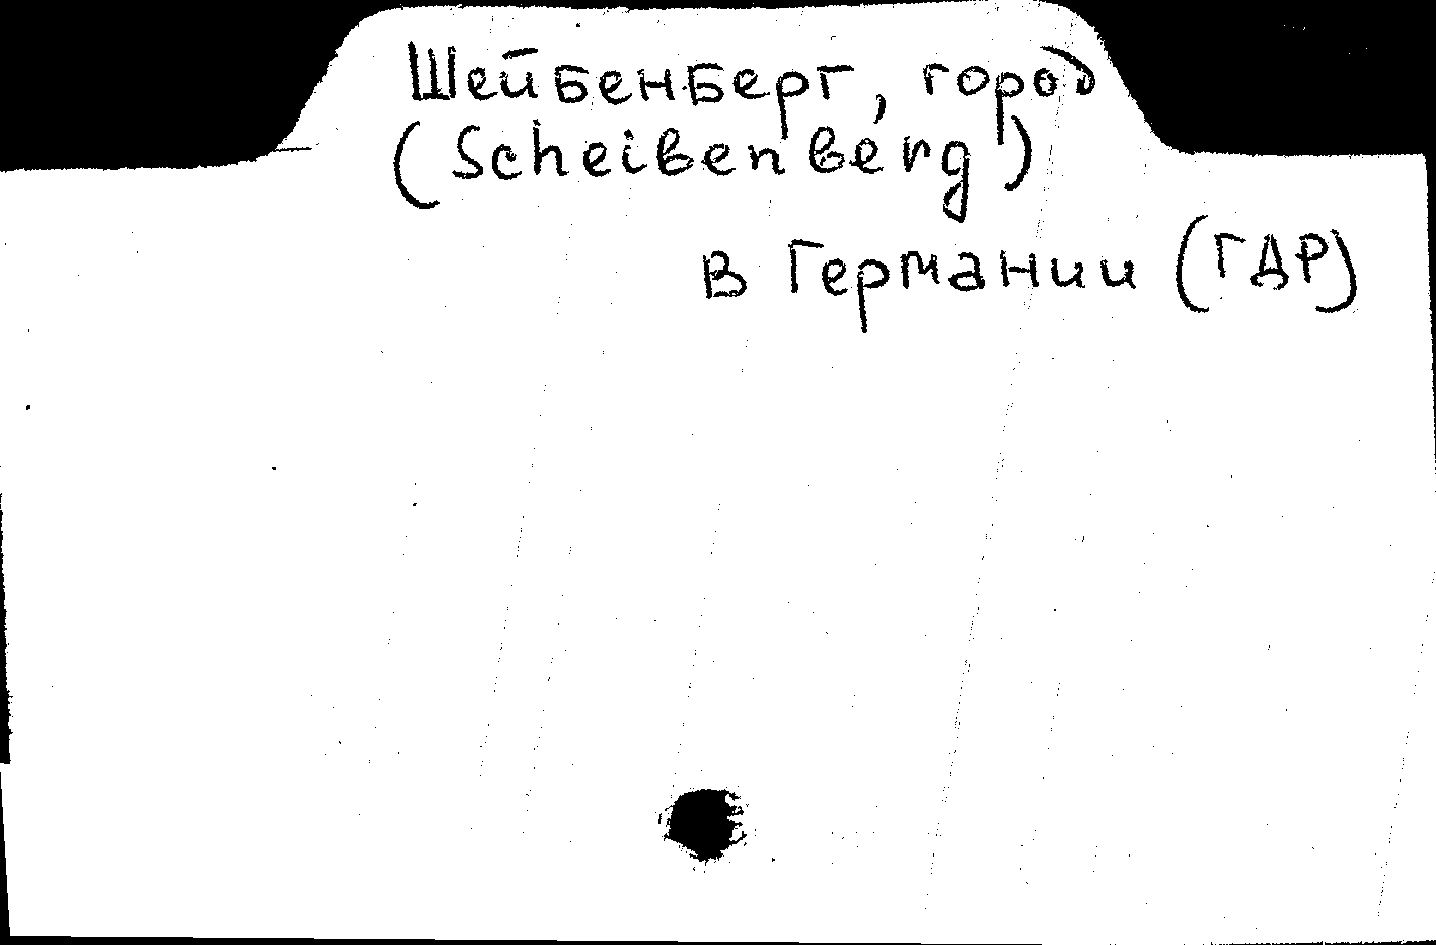 Шейбенберг, город
(Scheibenberg)
в Германии (ГДР)